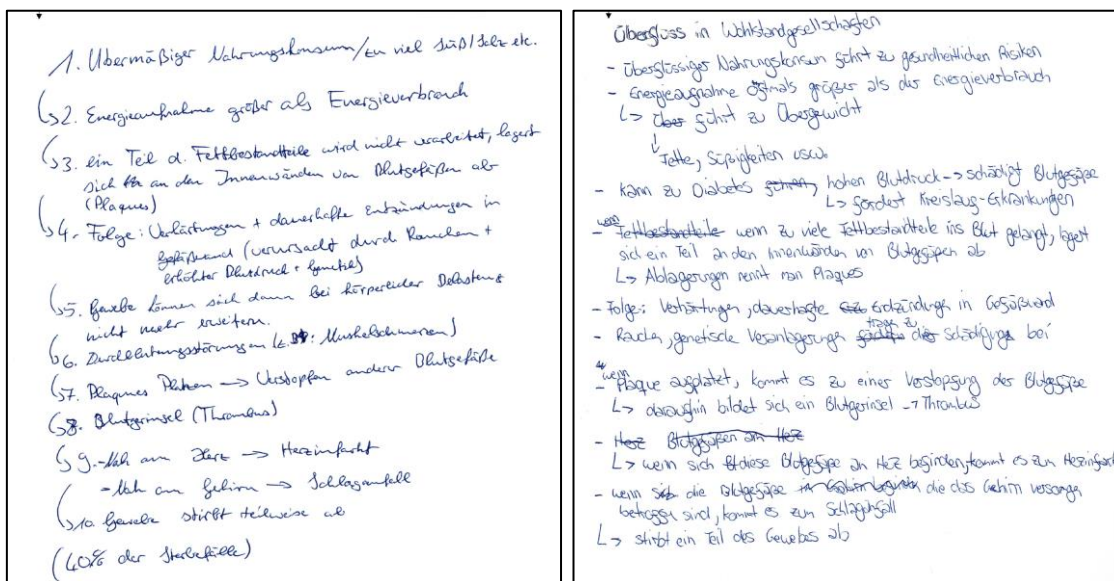 1. Übermäßiger Nahrungskonsum/zu viel Süß/Salz etc.
2. Energieaufnahme größer als Energieverbrauch
3. ein Teil d. Fettbestandteile wird nicht verarbeitet, lagert
sich an den Innenwänden von Blutgefäßen ab
(Plaques)
4. Folge: Verhärtungen + dauerhafte Entzündungen in
Gefäßwand (verursacht durch Rauchen +
erhöhter Blutdruck + Genetik)
5. Gewebe können sich dann bei körperlicher Belastung
nicht mehr erweitern.
6. Durchblutungsstörungen (z.B.: Muskelschmerzen)
7. Plaques Platzen → Verstopfen anderer Blutgefäße
8. Blutgerinsel (Thrombus)
9. -Nah am Herz → Herzinfarkt
-Nah am Gehirn → Schlaganfall
10. Gewebe stirbt teilweise ab
(40% der Sterbefälle)
Überfluss in Wohlstandgesellschaften
- Überflüssiger Nahrungskonsum führt zu gesundheitlichen Risiken
- Energieaufnahme oftmals größer als der Energieverbrauch
↳ führt zu Übergewicht
↓
Fette, Süßigkeiten usw.
- kann zu Diabetes führen, hohen Blutdruck → schädigt Blutgefäße
↳ fördert Kreislauf-Erkrankungen
- wenn zu viele Fettbestandteile ins Blut gelangt, lagert
sich ein Teil an den Innenwänden von Blutgefäßen ab
↳ Ablagerungen nennt man Plaques
- Folge: Verhärtungen, dauerhafte Entzündungen in Gefäßwand
- Rauchen, genetische Veranlagerungen tragen zu Schädigung bei
- wenn Plaque aufplatzt, kommt es zu einer Verstopfung der Blutgefäße
↳ daraufhin bildet sich ein Blutgerinsel → Thrombus
- Herz Blutgefäßen am Herz
↳ wenn sich diese Blutgefäße an Herz befinden, kommt es zum Herzinfarkt
- wenn die Blutgefäße die das Gehirn versorgen
betroffen sind, kommt es zum Schlaganfall
↳ stirbt ein Teil des Gewebes ab